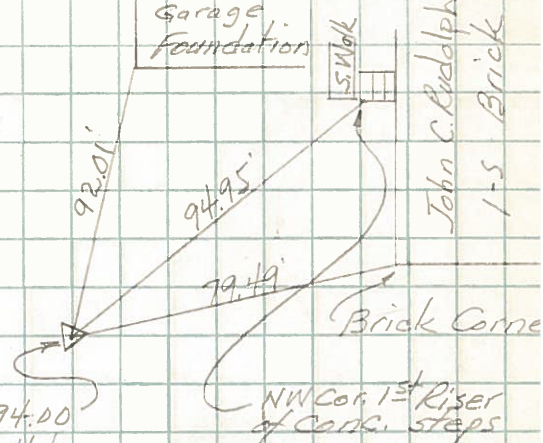 Garage
Foundation
S. Walk
John C. Rudolph
1-S Brick
92.01'
94.95'
79.49'
Brick Corne
NW Cor. 1st Riser
of Conc. steps
94.00